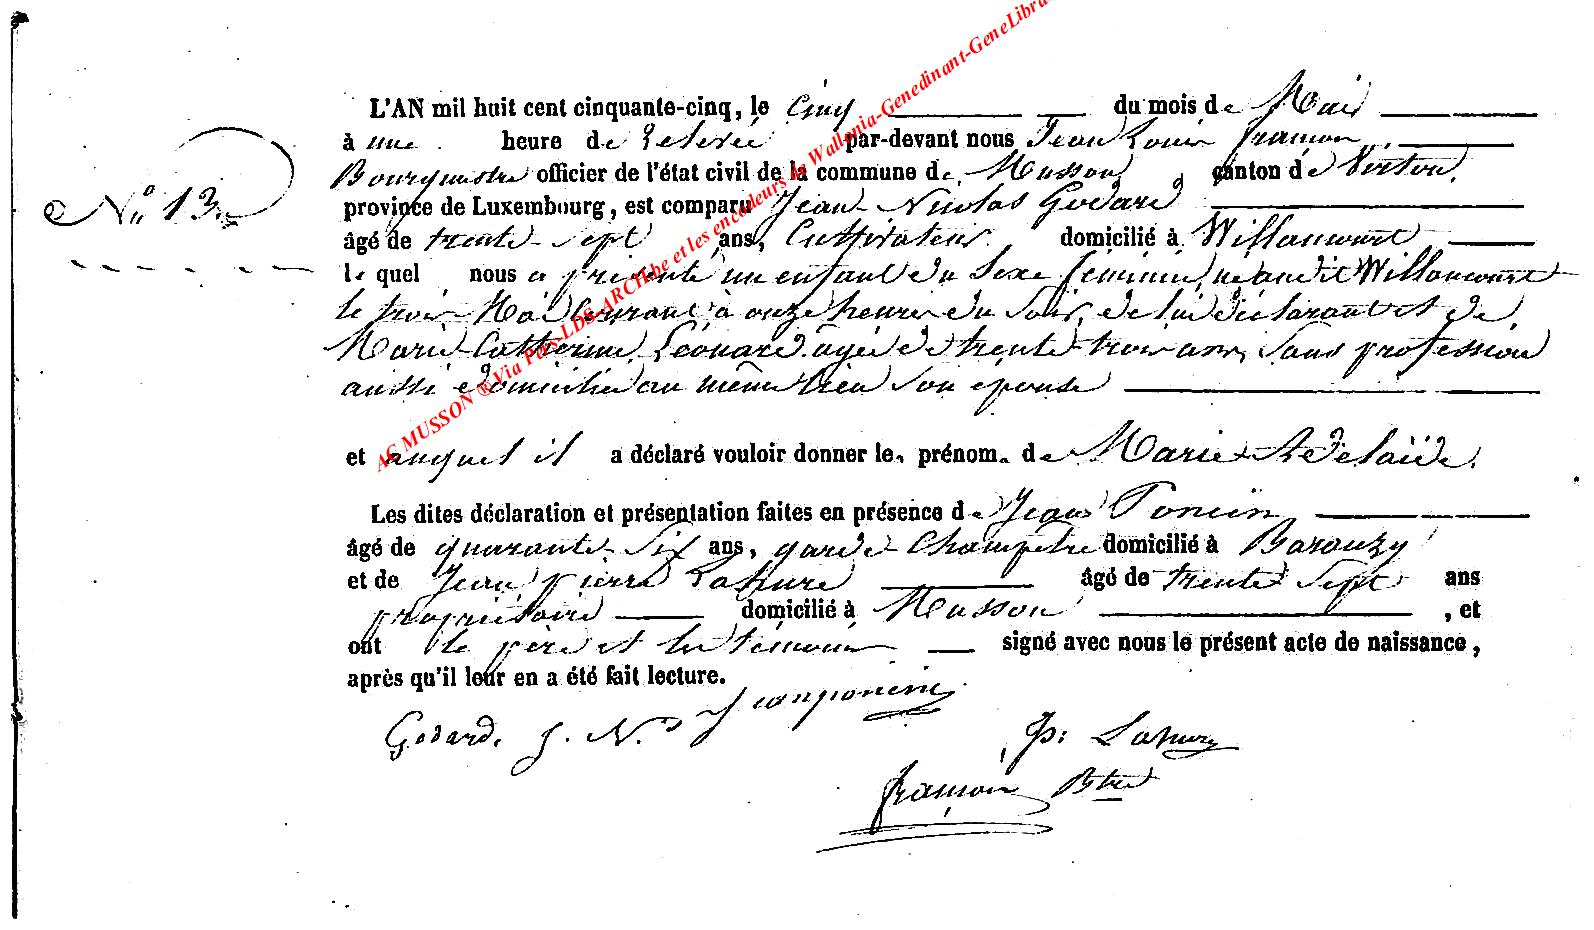 L'AN mil huit cent cinquante-cinq, le Cinq du mois de Mai
à une heure de relevée par-devant nous Jean Louis Framon
Bourgmestre officier de l'état civil de la commune de Musson canton de Virton,
N° 13
province de Luxembourg, est comparu Jean Nicolas Godard
âgé de trente-sept ans, Cultivateur domicilié à Willancourt
le quel nous a présenté un enfant du Sexe féminin, né audit Willancourt
le trois Mai Courant à onze heures du Soir, de lui déclarant et de
Marie Catherine Léonard agée de trente trois ans, Sans profession
aussi domiciliée au même lieu Son épouse
et auquel il a déclaré vouloir donner le prénom de Marie Adelaïde.
Les dites déclaration et présentation faites en présence de Jean Poncin
âgé de quarante-Six ans, garde-Champêtre domicilié à Baranzy
et de Jean pierre Lahure âgé de trente Sept ans
propriétaire domicilié à Musson, et
ont le père et les témoins signé avec nous le présent acte de naissance,
après qu'il leur en a été fait lecture.
Jean poncin
Godard, J. N.
Jp: Lahure
Framon Btre
AC MUSSON ® Via Pros-LDS-ARCHbe et les encodeurs la Wallonia-Genedinant-GeneLibra